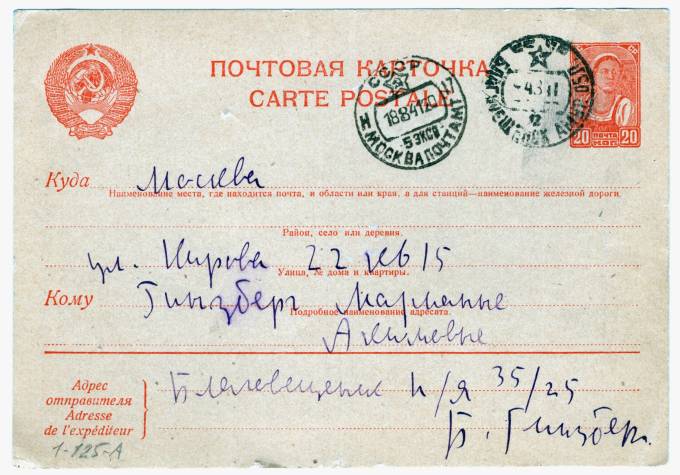 ПОЧТОВАЯ КАРТОЧКА
CARTE POSTALE
СССР
18 8 41 20
5 ЭКСП
МОСКВА ПОЧТАМТ
СССР
20 ПОЧТА 20
КОП
Куда Москва
Наименование места, где находится почта, и области или края, а для станций—наименование железной дороги.
Район, село или деревня.
ул. Кирова 22 кв 15
Улица, № дома и квартиры.
Кому Гинзберг Марианне
Подробное наименование адресата.
Акимовне
Адрес
отправителя
Adresse
de l'expéditeur
Благовещенск п/я 35/25
Б. Гинзберг
1-125-А